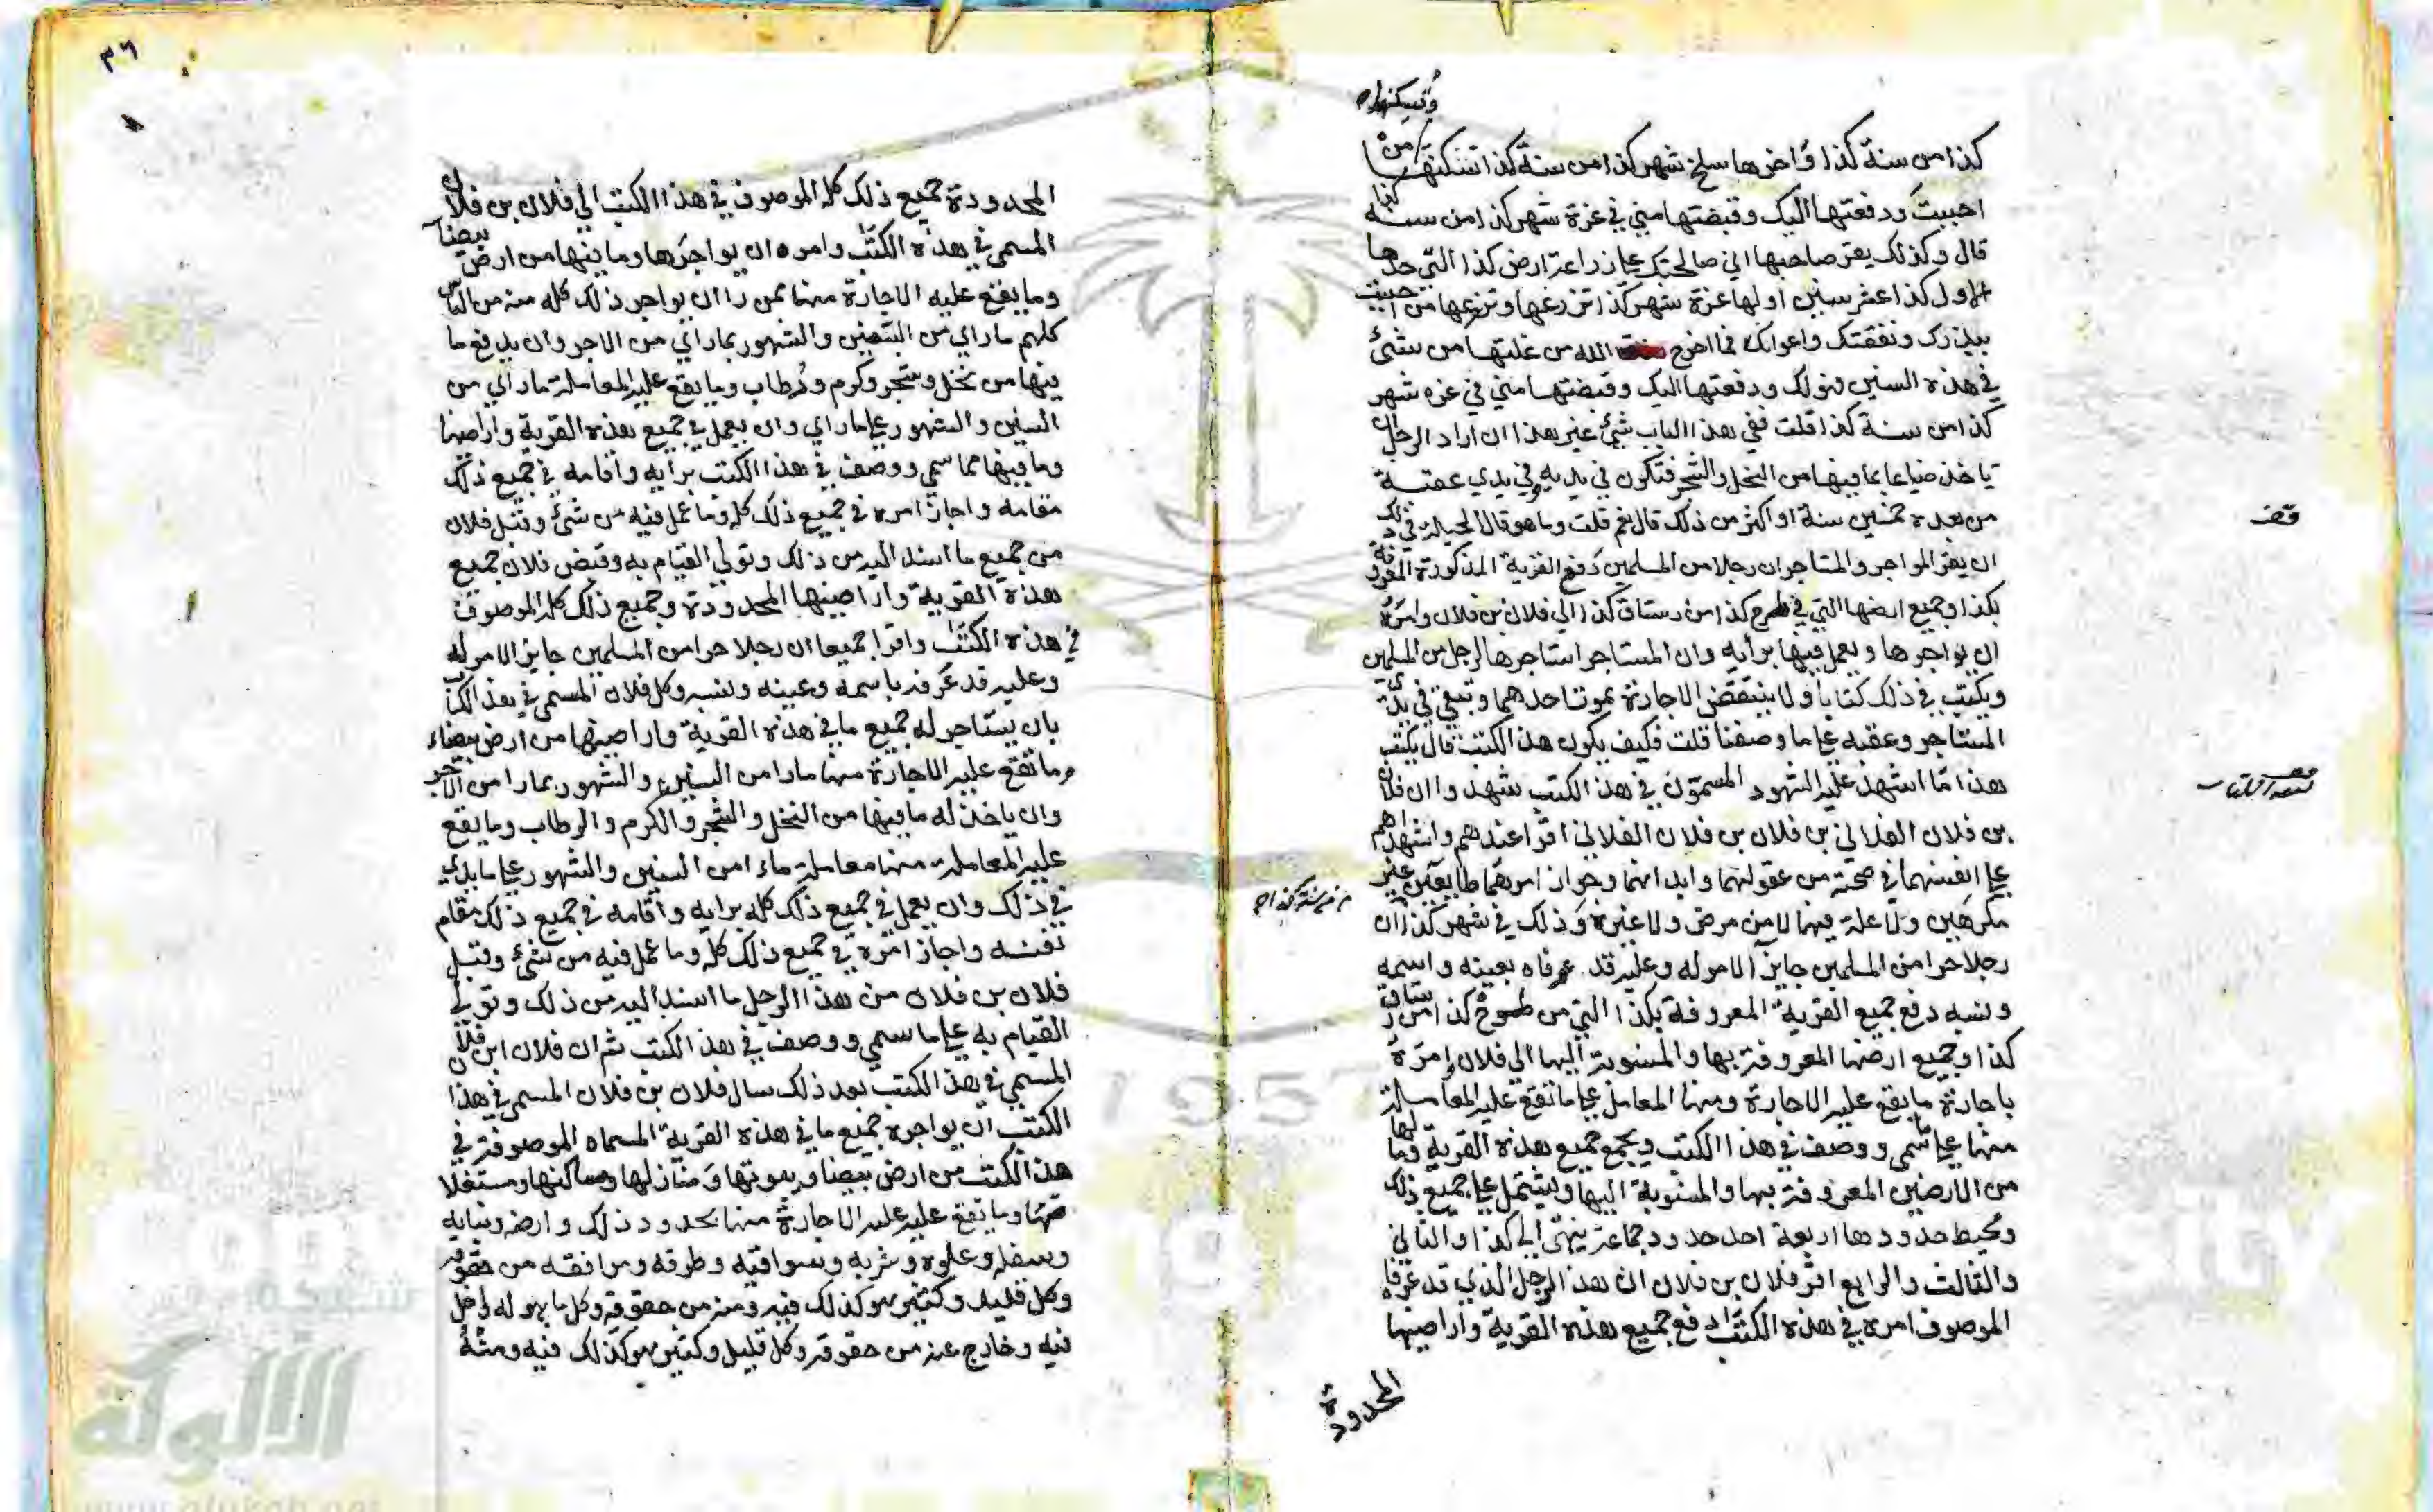 وتسكنها
كذا من سنة كذا واخرها سلخ شهر كذا من سنة كذا تسكنها من
احببت ودفعتها اليك وقبضتها مني في غرة شهر كذا من سنة كذا
قال وكذلك يقر صاحبها اني صالحتك علي زراعة ارض كذا التي حدها
الاول كذا عشر سنين اولها غرة شهر كذا تزرعها وتزرعها من احببت
ببذرك ونفقتك واعوانك فما اخرج الله من غلتها من شئ
في هذه السنين فهو لك ودفعتها اليك وقبضتها مني في غره شهر
كذا من سنة كذا قلت ففي هذا الباب شئ غير هذا ان اراد الرجل
ياخذ ضياعا بما فيها من النخل والشجر فتكون في يديه وفي يدي عقبه
من بعده خمسين سنة او اكثر من ذلك قال نعم قلت وما هو قال الحيلة في ذلك
ان يقر المواجر والمستاجر ان رجلا من المسلمين دفع القرية المذكورة المعروفة
بكذا وجميع ارضها التي في طسوج كذا من رستاق كذا الي فلان بن فلان وامره
ان يواجرها ويعمل فيها برأيه وان المستاجر استاجرها لرجل من المسلمين
ويكتب في ذلك كتابا ولا ينتقض الاجارة بموت احدهما وتبقي في يدي
المستاجر وعقبه علي ما وصفنا قلت فكيف يكون هذا الكتب قال يكتب
هذا ما اشهد عليه الشهود المسمون في هذا الكتب شهدوا ان فلان
بن فلان الفلاني بن فلان بن فلان الفلاني اقرا عندهم واشهداهم
علي انفسهما في صحة من عقولهما وابدانهما وجواز امرهما طايعين غير
مكرهين ولا علة فيهما لا من مرض ولا غيره وذلك في شهر كذا ان
رجلا حرا من المسلمين جايز الامر له وعليه قد عرفاه بعينه واسمه
ونسبه دفع جميع القرية المعروفة بكذا التي من طسوج كذا من رستاق
كذا وجميع ارضها المعروفة بها والمنسوبة اليها الي فلان امره
باجارة ما يقع عليه الاجارة ومنها المعامل علي ما تقع عليه المعاملة
منها علي ما سمي ووصف في هذا الكتب ويجمع جميع هذه القرية وما لها
من الارضين المعروفة بها والمنسوبة اليها ويشتمل علي جميع ذلك
ومحيط حدودها اربعة احد حدود جماعة ينتهي الي كذا والثاني
والثالث والرابع اقر فلان بن فلان ان هذا الرجل الذي قد عرفاه
الموصوف امره في هذه الكتب دفع جميع هذه القرية واراضيها
المحدودة
قف
٣٦
المحدودة جميع ذلك كله الموصوف في هذا الكتب الي فلان بن فلان
المسمي في هذه الكتب وامره ان يواجرها وما فيها من ارض بيضآ
وما يقع عليه الاجارة منها ممن راا ان يواجر ذلك كله منه من الناس
كلهم ما راي من السنين والشهور بما راي من الاجر وان يدفع ما
فيها من نخل وشجر وكرم ورطاب وما يقع عليه المعاملة ما راي من
السنين والشهور علي ما راي وان يعمل في جميع هذه القرية واراضيها
وما فيها مما سمي ووصف في هذا الكتب برايه واقامه في جميع ذلك
مقامه واجاز امره في جميع ذلك كله وما عمل فيه من شئ وقبل فلان
من جميع ما اسند اليه من ذلك وتولي القيام به وقبض فلان جميع
هذه القرية واراضيها المحدودة وجميع ذلك كله الموصوف
في هذه الكتب واقرا جميعا ان رجلا حرا من المسلمين جايز الامر له
وعليه قد عرفه باسمه وعينه ونسبه وكل فلان المسمي في هذا الكتاب
بان يستاجر له جميع ما في هذه القرية واراضيها من ارض بيضاء
وما تقع عليه الاجارة منها مارا من السنين والشهور بمارا من الاجر
وان ياخذ له ما فيها من النخل والشجر والكرم والرطاب وما يقع
عليه المعاملة منها معاملة ماء امن السنين والشهور علي ما بدي
في ذلك وان يعمل في جميع ذلك كله برايه واقامه في جميع ذلك مقام
نفسه واجاز امره في جميع ذلك كله وما عمل فيه من شئ وقبل
فلان بن فلان من هذا الرجل ما اسند اليه من ذلك وتولي
القيام به علي ما سمي ووصف في هذا الكتب ثم ان فلان ابن فلان
المسمي في هذا الكتب بعد ذلك سال فلان بن فلان المسمي في هذا
الكتب ان يواجره جميع ما في هذه القرية المسماه الموصوفة في
هذا الكتب من ارض بيضا وبيوتها ومنازلها ومساكنها ومستغلا
تها وما يقع عليه عليه الاجارة منها بحدود ذلك وارضه وبنايه
وسفله وعلوه وشربه وسواقيه وطرقه ومرافقه من حقوقه
وكل قليل وكثير هو كذلك فيه ومنه من حقوقه وكل ما هو له داخل
فيه وخارج عنه من حقوقه وكل قليل وكثير هو كذلك فيه ومنه
1957
شبكة
الألوكة
www.alukah.net